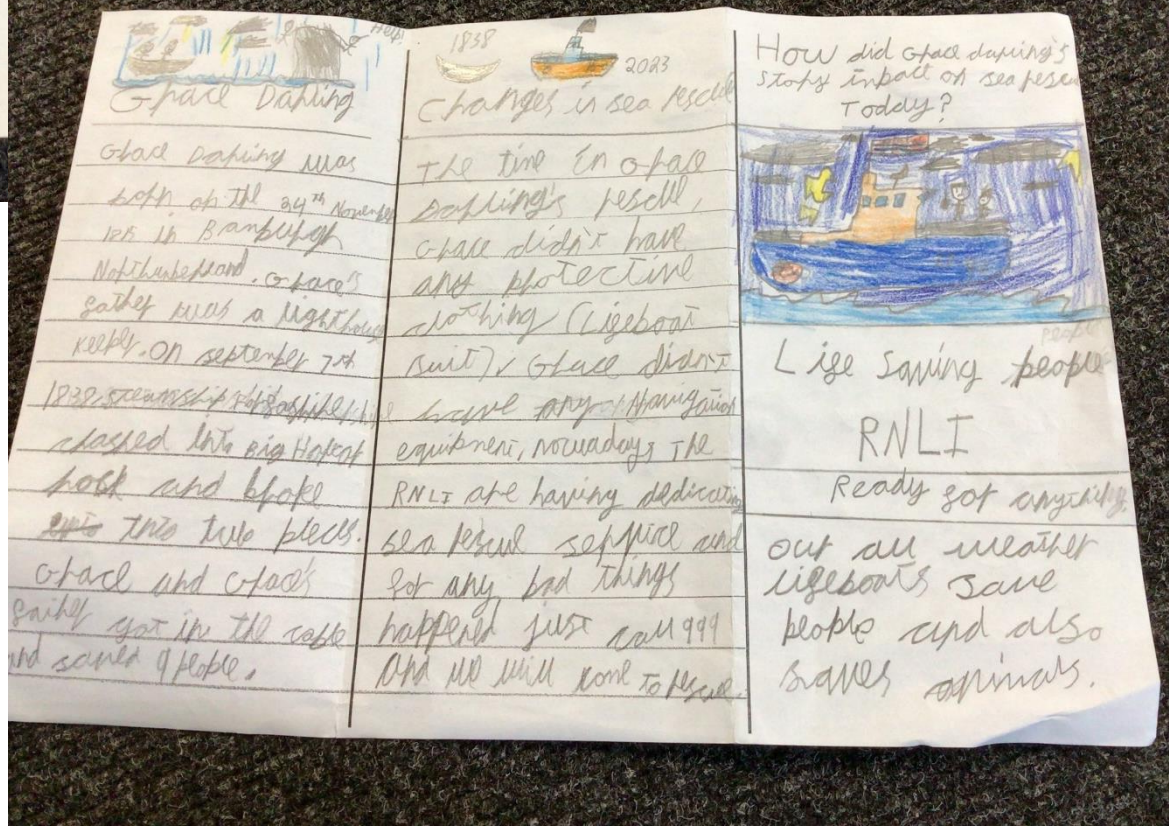 Help!
Grace Darling
Grace Darling was
born on the 24th November
in Bamburgh
Northumberland. Grace's
father was a lighthouse
keeper. On september 7th
1838, steamship
crashed into Big Harcar
rock and broke
into two pieces.
Grace and Grace's
father got in the coble
and saved 9 people.
1838
2023
Changes in sea rescue
The time in Grace
Darling's rescue,
Grace didn't have
any protective
clothing (lifeboat
suit). Grace didn't
have any navigation
equipment, nowadays the
RNLI are having dedicating
sea rescue serivice and
for any bad things
happened just call 999
and we will come to rescue.
How did Grace darling's
story inpact on sea rescue
Today?
people
Life Saving people
RNLI
Ready for anything.
our all weather
lifeboats save
people and also
saves animals.